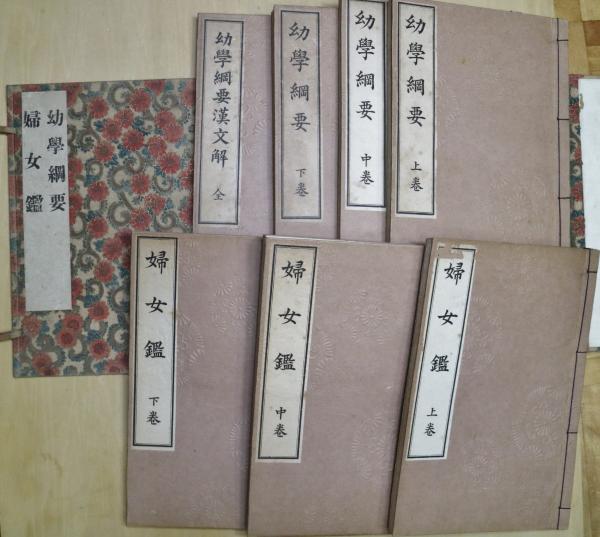 幼學綱要
婦女鑑
幼學綱要漢文解 全
幼學綱要 下卷
幼學綱要 中卷
幼學綱要 上卷
婦女鑑 下卷
婦女鑑 中卷
婦女鑑 上卷